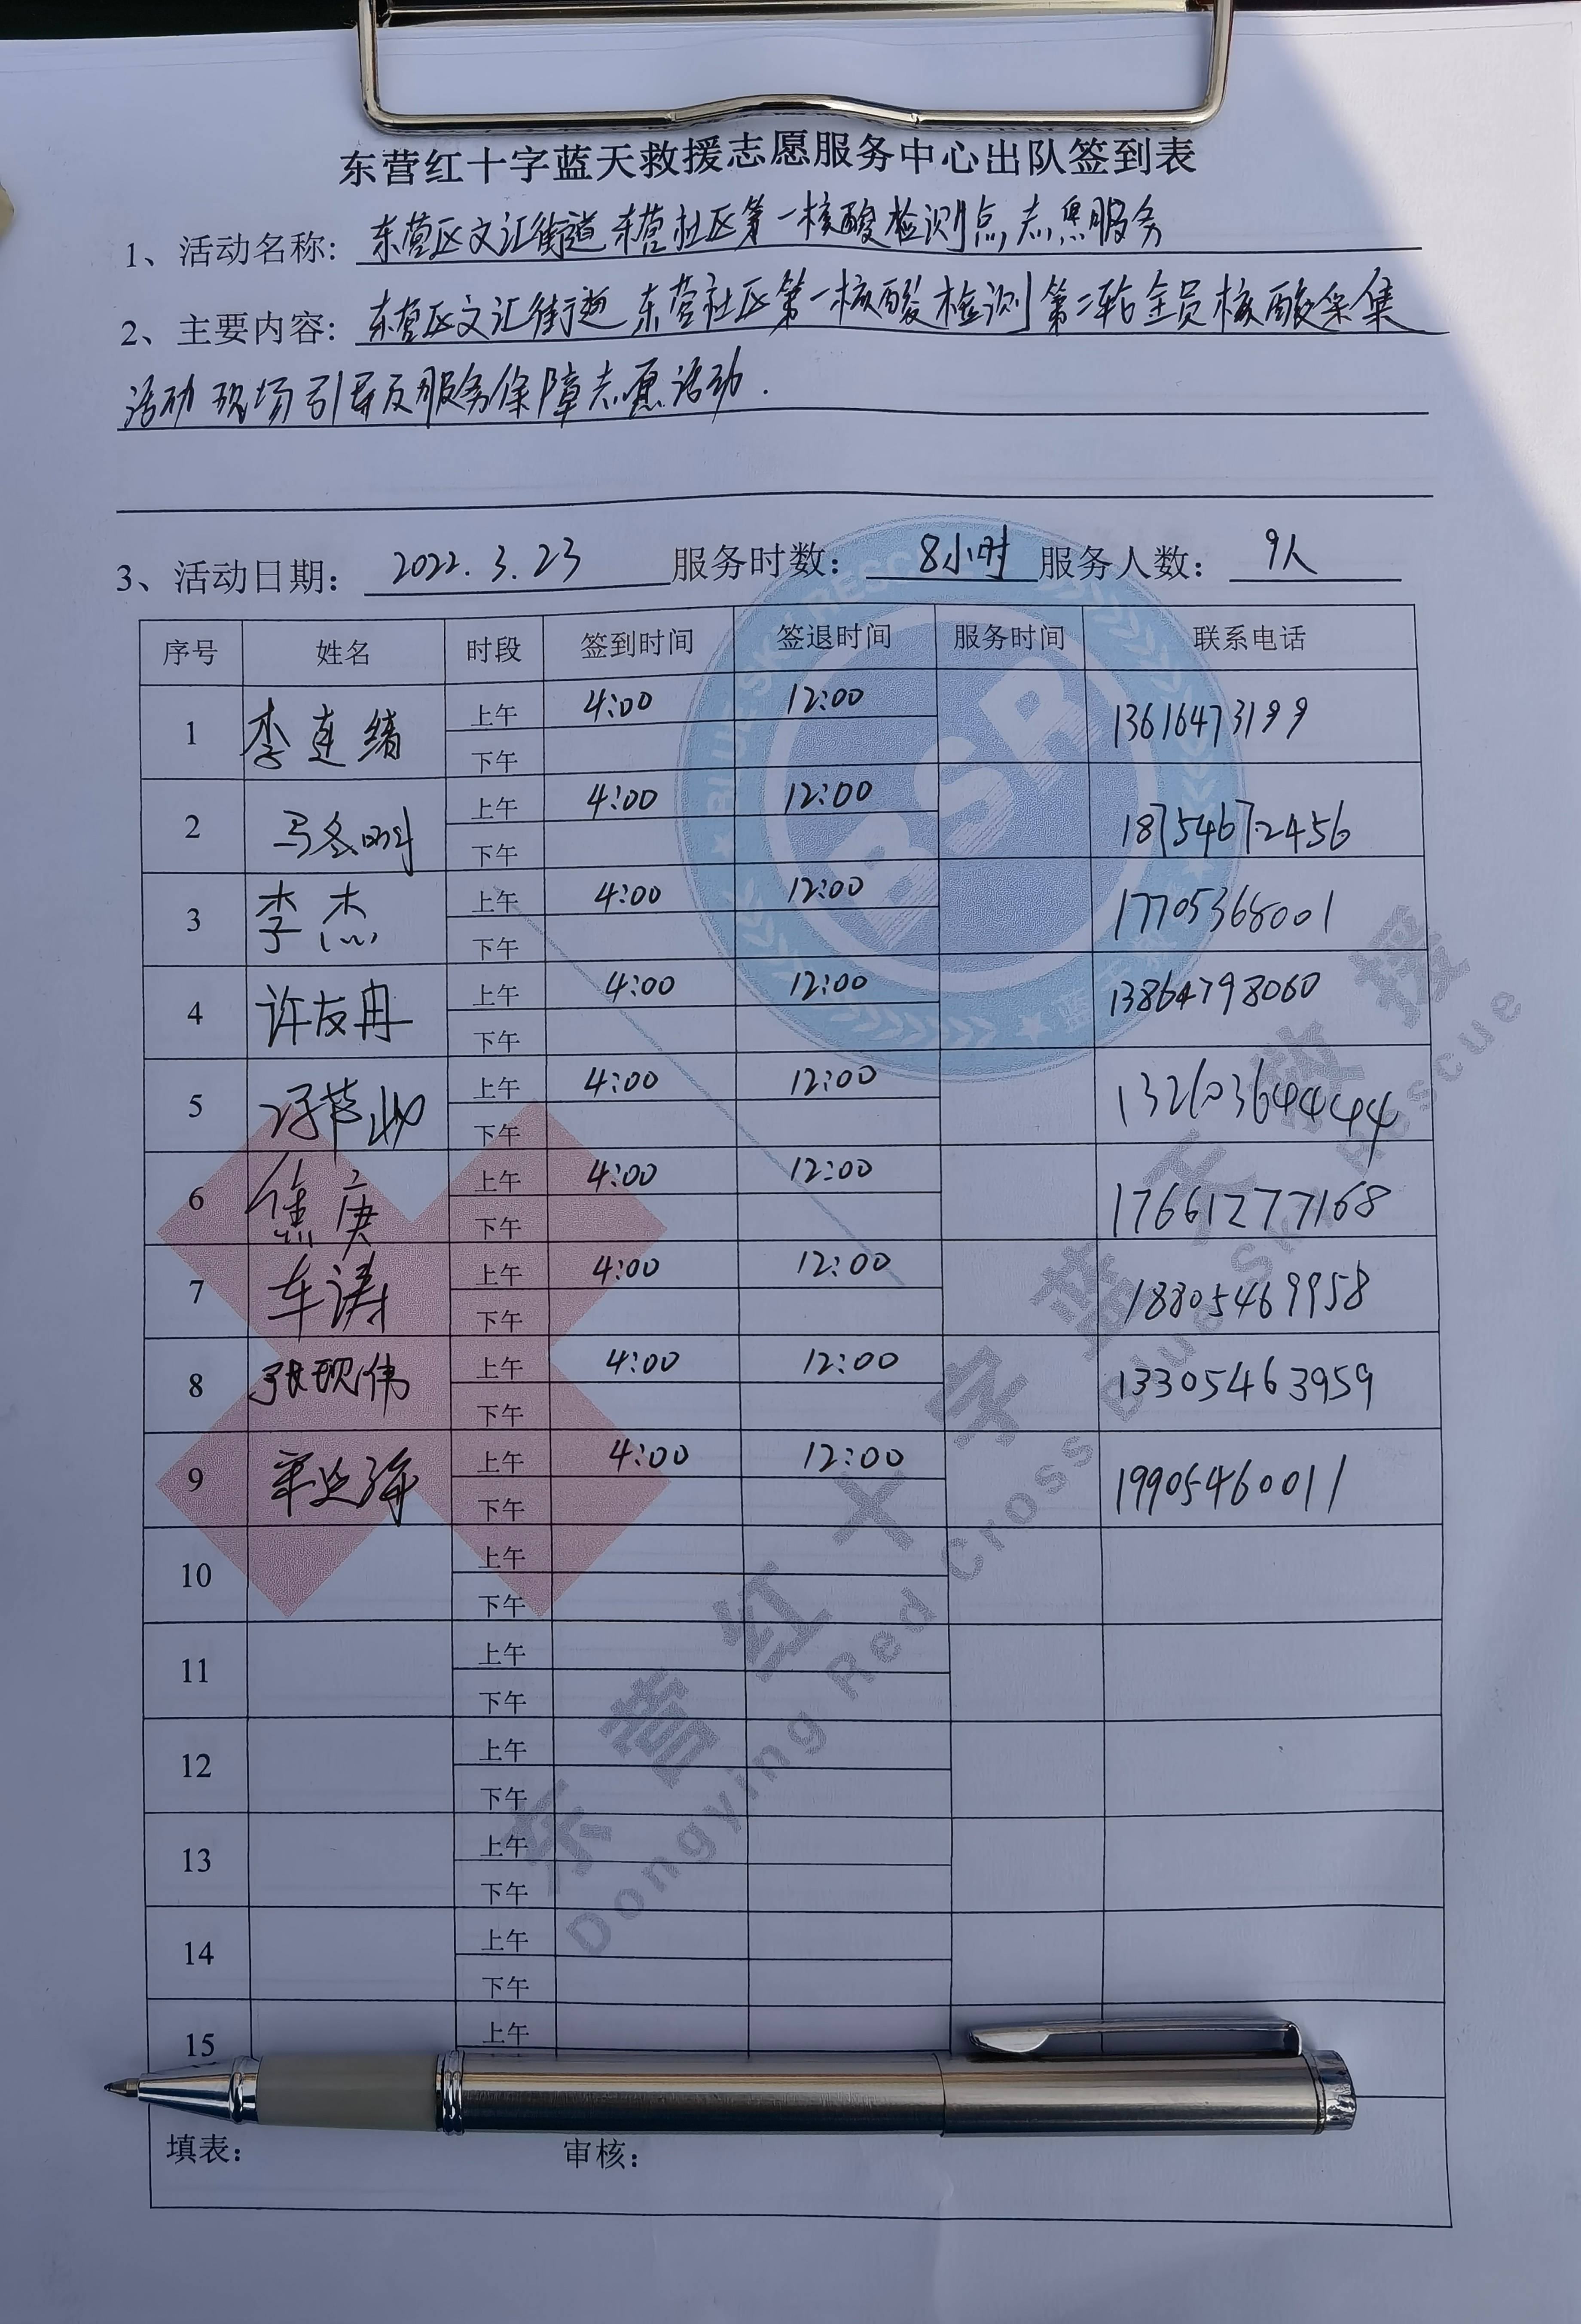 东营红十字蓝天救援志愿服务中心出队签到表
1、活动名称: 东营区文汇街道东营社区第一核酸检测点志愿服务
2、主要内容: 东营区文汇街道东营社区第一核酸检测第二轮全员核酸采集
活动现场引导及服务保障志愿活动.
3、活动日期: 2022.3.23 服务时数: 8小时 服务人数: 9人
序号 姓名 时段 签到时间 签退时间 服务时间 联系电话
1 李连绪 上午 4:00 12:00 13616473199
下午
2 上午 4:00 12:00 18754672456
下午
3 李杰 上午 4:00 12:00 17705368001
下午
4 许友冉 上午 4:00 12:00 13864798060
下午
5 上午 4:00 12:00 13260364444
下午
6 焦庚 上午 4:00 12:00 17661277168
下午
7 车涛 上午 4:00 12:00 18805469958
下午
8 张现伟 上午 4:00 12:00 13305463959
下午
9 上午 4:00 12:00 19905460011
下午
10 上午
下午
11 上午
下午
12 上午
下午
13 上午
下午
14 上午
下午
15 上午
填表: 审核:
BLUE SKY RESCUE
BSR
东营红十字蓝天救援
Dongying Red Cross Blue Sky Rescue